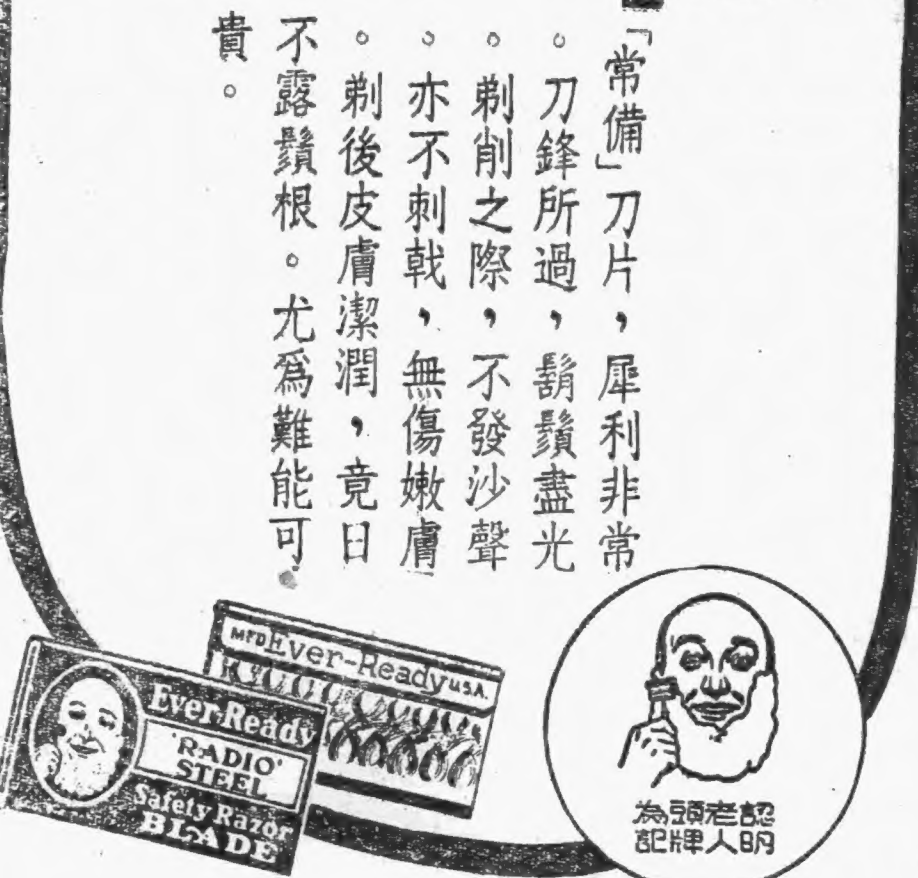 「常備」刀片，犀利非常
。刀鋒所過，鬍鬚盡光
。剃削之際，不發沙聲
，亦不刺戟，無傷嫩膚
。剃後皮膚潔潤，竟日
不露鬚根。尤爲難能可
貴。
MFD Ever-Ready U.S.A.
Ever-Ready
'RADIO'
STEEL
Safety Razor
BLADE
認明
老人
頭牌
為記